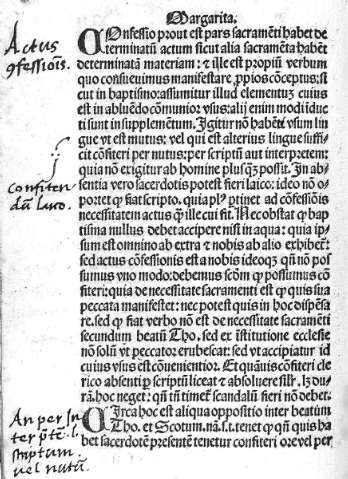 Margarita.
Actus
ꝯfessiōis.
COnfessio prout est pars sacramēti habet de
terminatū actum sicut alia sacramēta habēt
determinatā materiam: ⁊ ille est propiū verbum
quo consueuimus manifestare ꝓpios cōceptus; si
cut in baptismo: assumitur illud elementuꝫ cuius
est in abluēdo cōmunior vsus: alij enim modi idue
ti sunt in supplemētum. Igitur nō habēti vsum lin
gue vt est mutus: vel qui est alterius lingue suffi
cit cōfiteri per nutus: per scriptū aut interpretem:
quia nō exigitur ab homine plusqꝫ possit. In ab
Confiten
dū laico.
sentia vero sacerdotis potest fieri laico: ideo nō o
portet ꝙ fiat scripto. quia plꝰ ꝑtinet ad cōfessiōis
necessitatem actus ꝙ ille cui fit. Nec obstat ꝙ bap
tisma nullus debet accipere nisi in aqua: quia ip
sum est omnino ab extra ⁊ nobis ab alio exhibet̉:
sed actus cōfessionis est a nobis ideoqꝫ qn̄ nō pos
sumus vno modo: debemus scd̄m ꝙ possumus cō
fiteri: quia de necessitate sacramenti est ꝙ quis sua
peccata manifestet: nec potest quis in hoc dispēsa
re. sed ꝙ fiat verbo nō est de necessitate sacramēti
secundum beatū Tho. sed ex īstitutione ecclesie
nō solū vt peccator erubescat: sed vt accipiatur id
cuius vsus est cōuenientior. Et quāuis cōfiteri cle
rico absenti ꝑ scriptū liceat ⁊ absoluere sil̉r. lꝫ du
rā. hoc neget: qn̄ tn̄ timet̉ scandalū fieri nō debet.
An per in
ter p̄te. l.
scriptum
vel nutū.
CIrca hoc est aliqua oppositio inter beatum
Tho. et Scotum. nā. s. t. tenet ꝙ qn̄ quis ha
bet sacerdotē presentē tenetur confiteri ore vel per